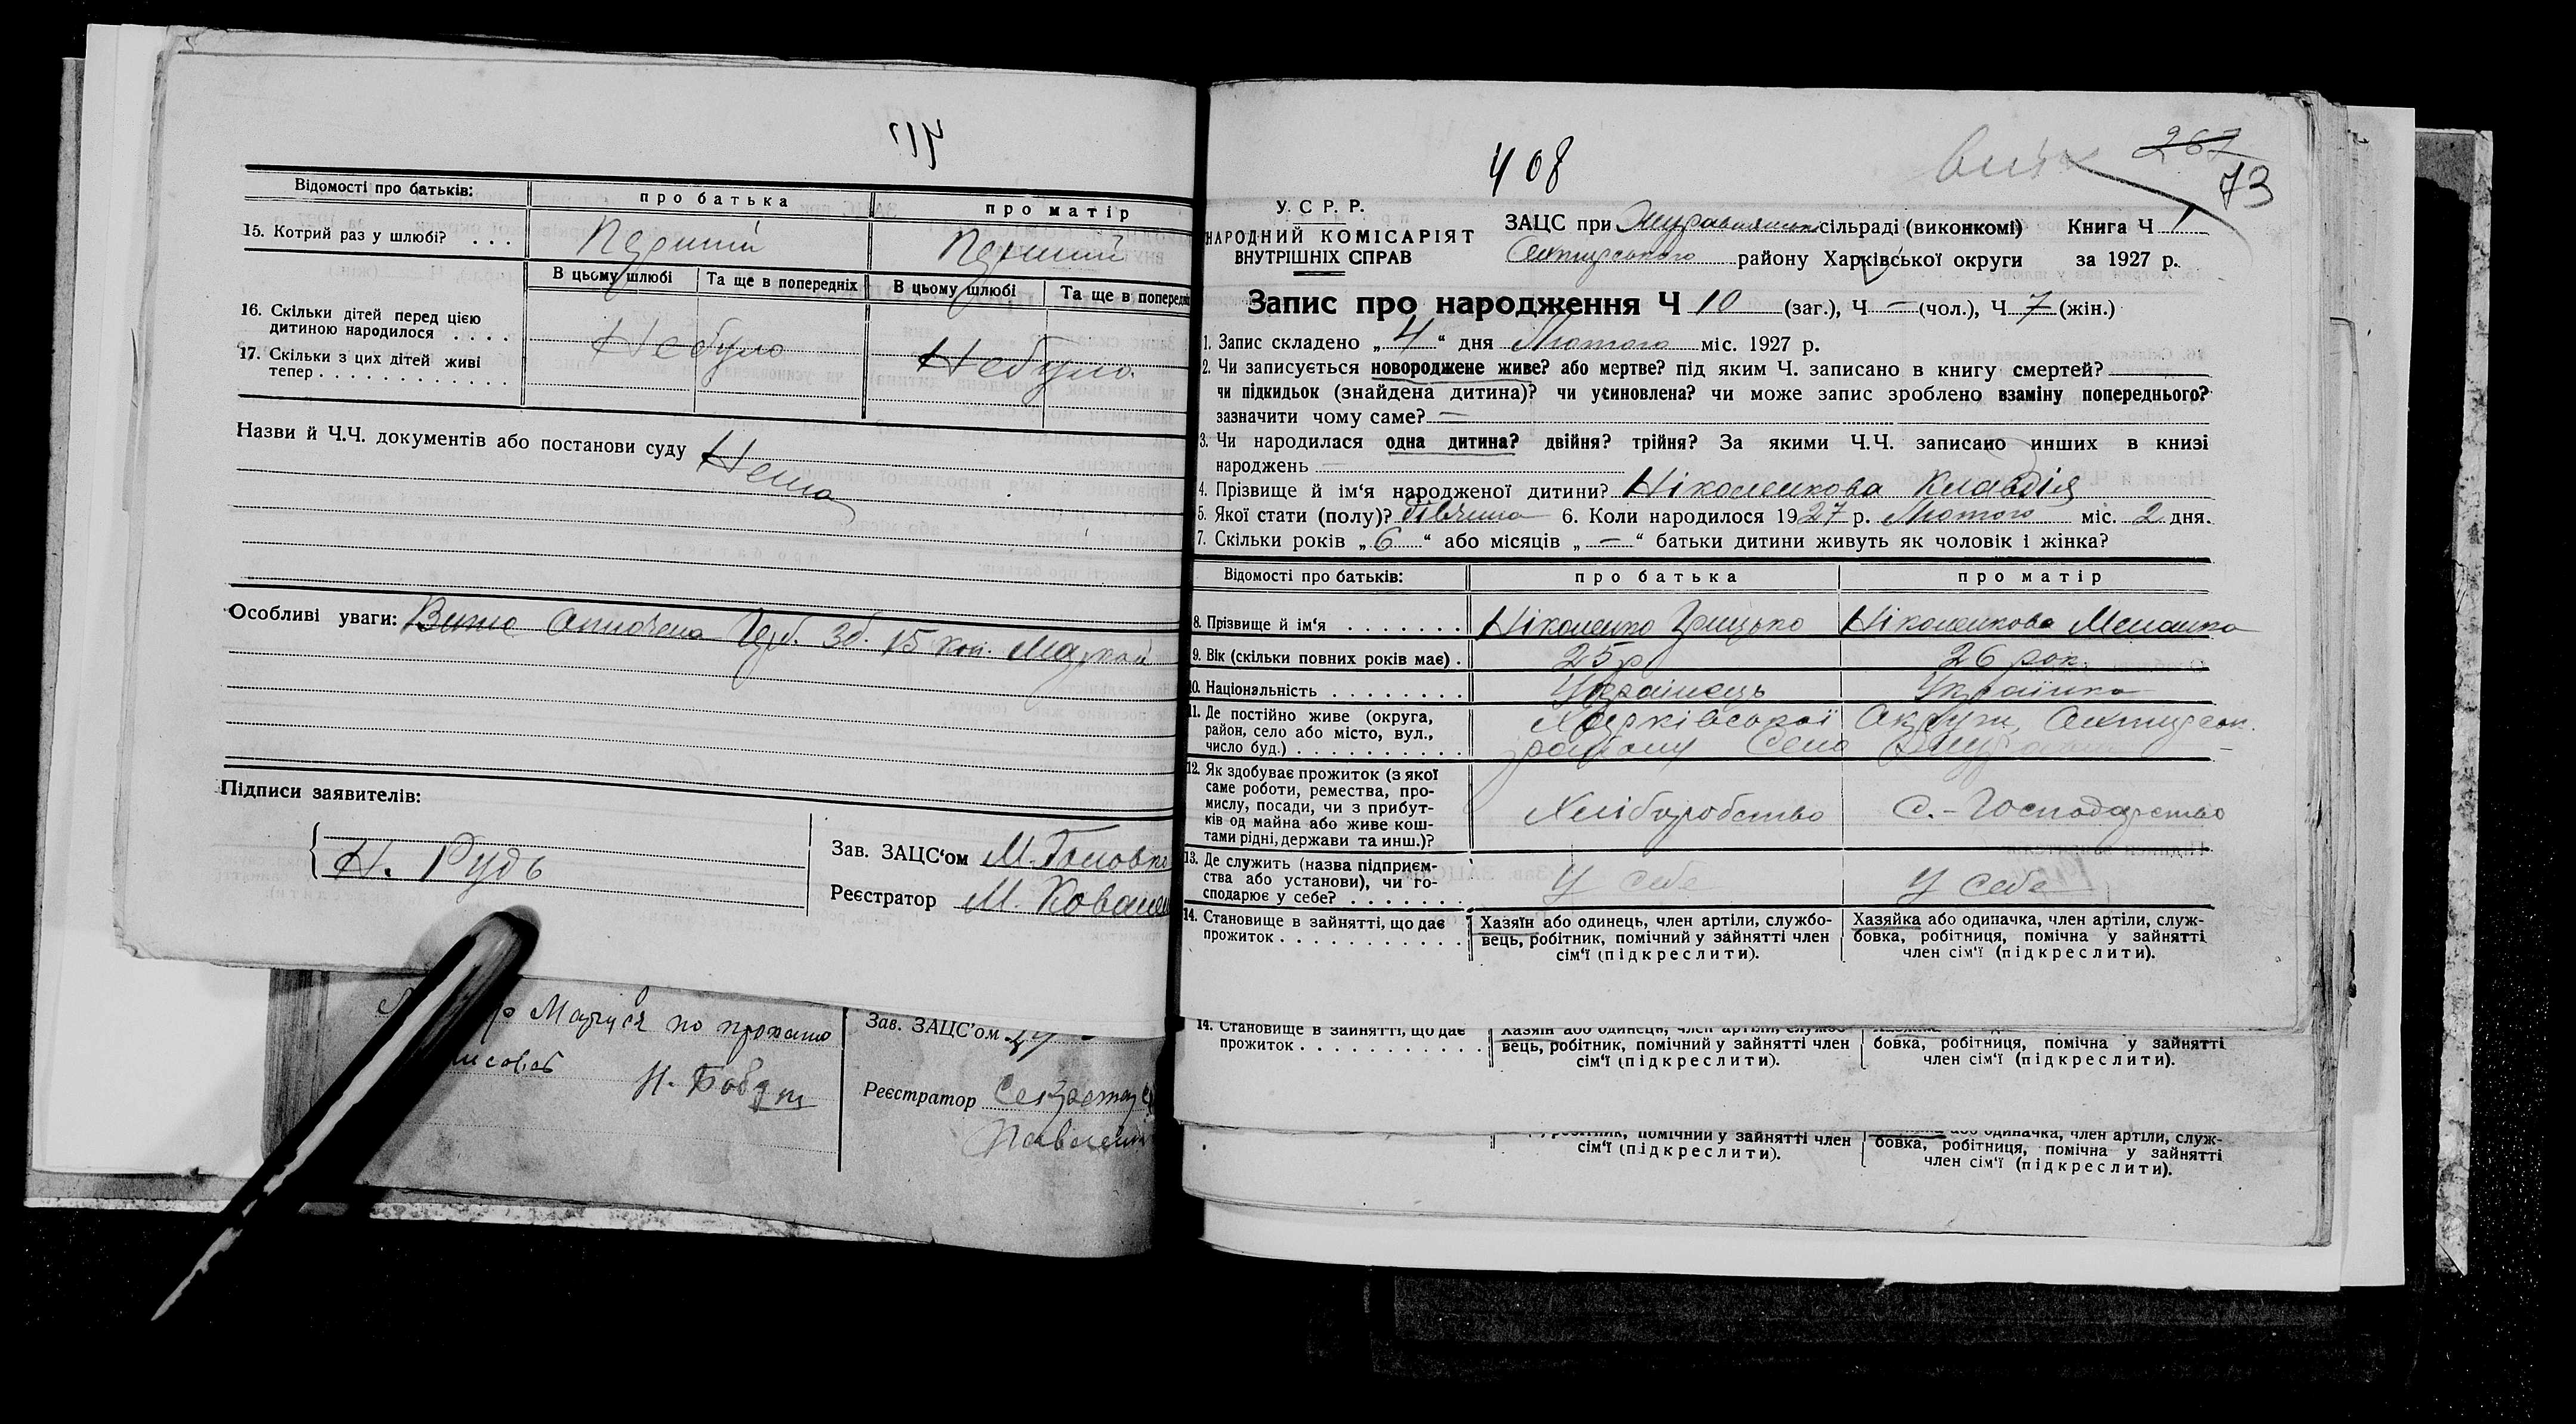 Відомості про батьків: про батька про матір
15. Котрий раз у шлюбі? . . . Перший Перший
В цьому шлюбі Та ще в попередніх В цьому шлюбі Та ще в попередн
16. Скільки дітей перед цією
дитиною народилося . . . . Небуло Небуло
17. Скільки з цих дітей живі
тепер . . . . . . . . . . . .
Назви й Ч.Ч. документів або постанови суду Нема
Особливі уваги: Оплочена Герб. Зб. 15 коп. Маркой
Підписи заявителів:
Н. Рудь
Зав. ЗАЦС‘ом М. Головко
Реєстратор М. Ковален
Маруся по проханю
Н. Бобер
Зав. ЗАЦС‘ом
Реєстратор Секретар
408
267
73
У. С. Р. Р.
НАРОДНИЙ КОМІСАРІЯТ
ВНУТРІШНІХ СПРАВ
ЗАЦС при сільраді (виконкомі) Книга Ч 1
району Харківської округи за 1927 р.
Запис про народження Ч 10 (заг.), Ч — (чол.), Ч 7 (жін.)
1. Запис складено „ 4 “ дня Лютого міс. 1927 р.
2. Чи записується новороджене живе? або мертве? під яким Ч. записано в книгу смертей?
чи підкидьок (знайдена дитина)? чи усиновлена? чи може запис зроблено взаміну попереднього?
зазначити чому саме? —
3. Чи народилася одна дитина? двійня? трійня? За якими Ч.Ч. записано инших в книзі
народжень —
4. Прізвище й ім‘я народженої дитини? Ніколенкова Клавдія
5. Якої стати (полу)? дівчина 6. Коли народилося 1927 р. Лютого міс. 2 дня.
7. Скільки років „ 6 “ або місяців „ — “ батьки дитини живуть як чоловік і жінка?
Відомості про батьків: про батька про матір
8. Прізвище й ім‘я . . . . . . . Ніколенко Грицько Ніколенкова Меланка
9. Вік (скільки повних років має) . 25 р 26 рок.
10. Національність . . . . . . . . Українець Українка
11. Де постійно живе (округа,
район, село або місто, вул.,
число буд.) . . . . . . . . . . Харківської Округи, Охтирськ.
району Село
12. Як здобуває прожиток (з якої
саме роботи, ремества, про-
мислу, посади, чи з прибут-
ків од майна або живе кош-
тами рідні, держави та инш.)? Хліборобство С.-Господарство
13. Де служить (назва підприєм-
ства або установи), чи го-
сподарює у себе? . . . . . . . У себе У себе
14. Становище в зайнятті, що дає
прожиток . . . . . . . . . . . .
Хазяїн або одинець, член артіли, службо-
вець, робітник, помічний у зайнятті член
сім‘ї (підкреслити).
Хазяйка або одиначка, член артіли, служ-
бовка, робітниця, помічна у зайнятті
член сім‘ї (підкреслити).
14. Становище в зайнятті, що дає
прожиток . . . . . . . . . . . .
вець, робітник, помічний у зайнятті член
сім‘ї (підкреслити).
бовка, робітниця, помічна у зайнятті
член сім‘ї (підкреслити).
помічний у зайнятті член
сім‘ї (підкреслити).
одиначка, член артіли, служ-
бовка, робітниця, помічна у зайнятті
член сім‘ї (підкреслити).